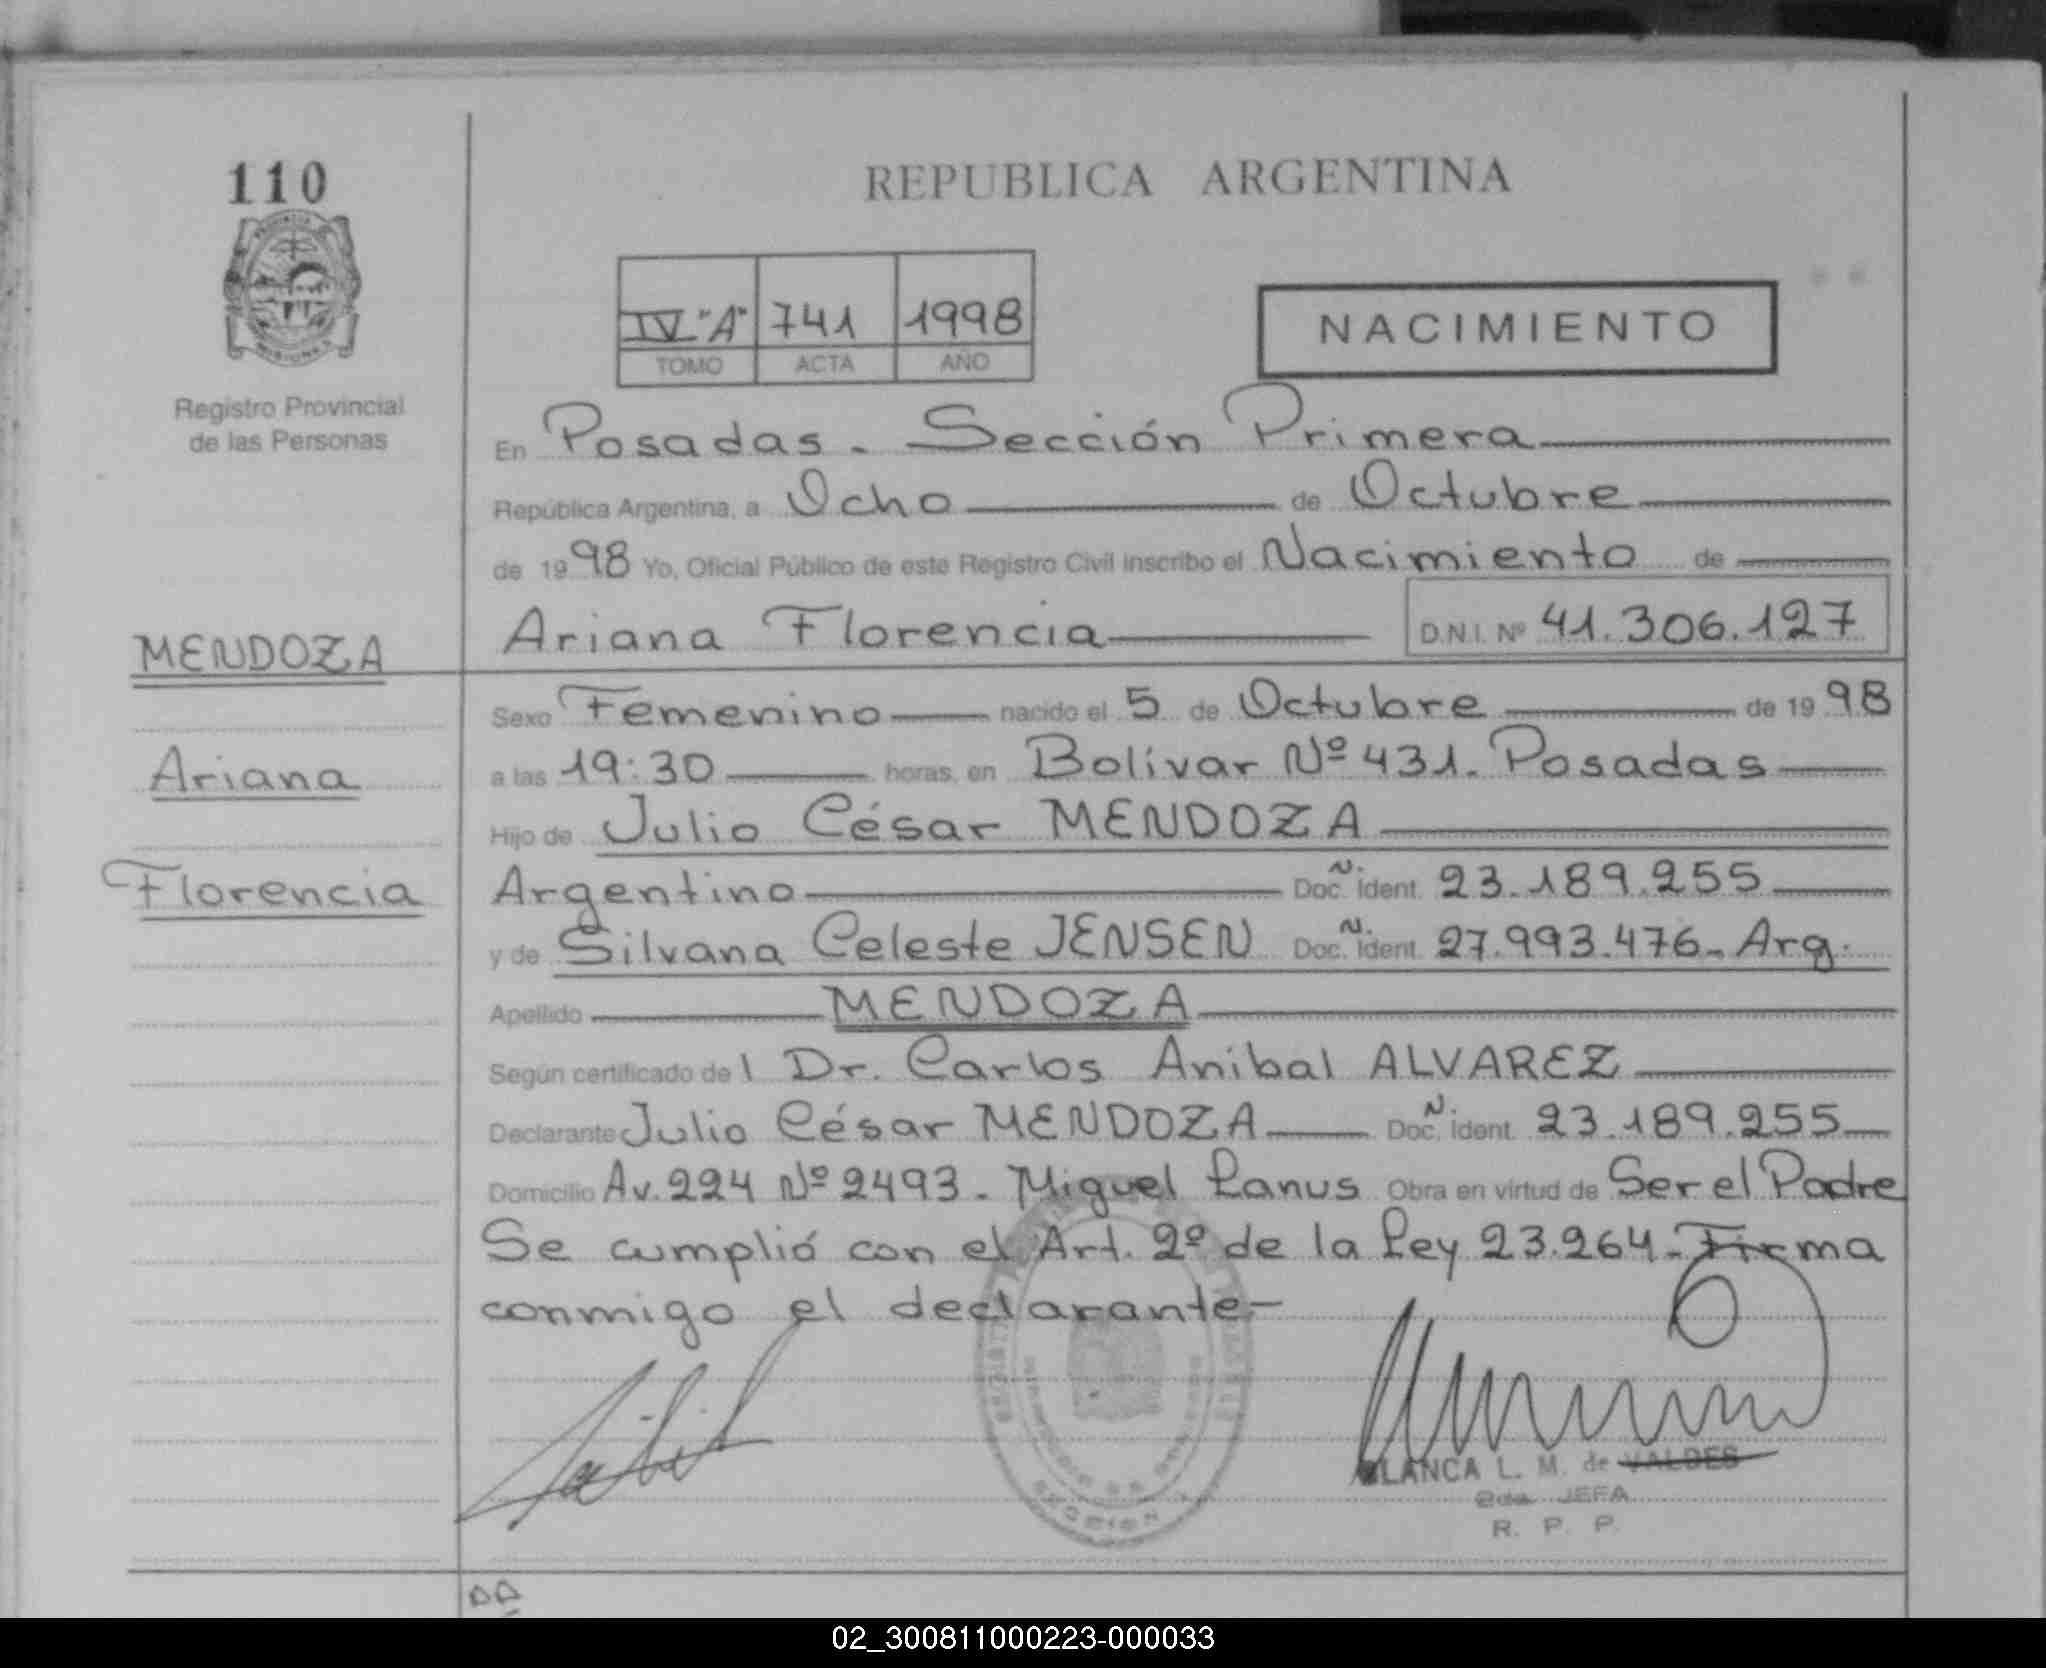 110
REPUBLICA ARGENTINA
IV "A" 741 1998
TOMO ACTA AÑO
NACIMIENTO
MISIONES
Registro Provincial
de las Personas
En Posadas - Sección Primera
República Argentina, a Ocho de Octubre
de 1998 Yo, Oficial Público de este Registro Civil inscribo el Nacimiento de
Ariana Florencia D.N.I. Nº 41.306.127
MENDOZA
Ariana
Florencia
Sexo Femenino nacido el 5 de Octubre de 1998
a las 19:30 horas, en Bolívar Nº 431. Posadas
Hijo de Julio César MENDOZA
Argentino Doc. N. Ident. 23.189.255
y de Silvana Celeste JENSEN Doc. N. Ident. 27.993.476- Arg.
Apellido MENDOZA
Según certificado del Dr. Carlos Anibal ALVAREZ
Declarante Julio César MENDOZA Doc. N. Ident. 23.189.255
Domicilio Av. 224 Nº 2493 - Miguel Lanus Obra en virtud de Ser el Padre
Se cumplió con el Art. 2º de la Ley 23.264- Firma
conmigo el declarante-
BLANCA L. M. de VALDES
2da. JEFA
R. P. P.
02_300811000223-000033